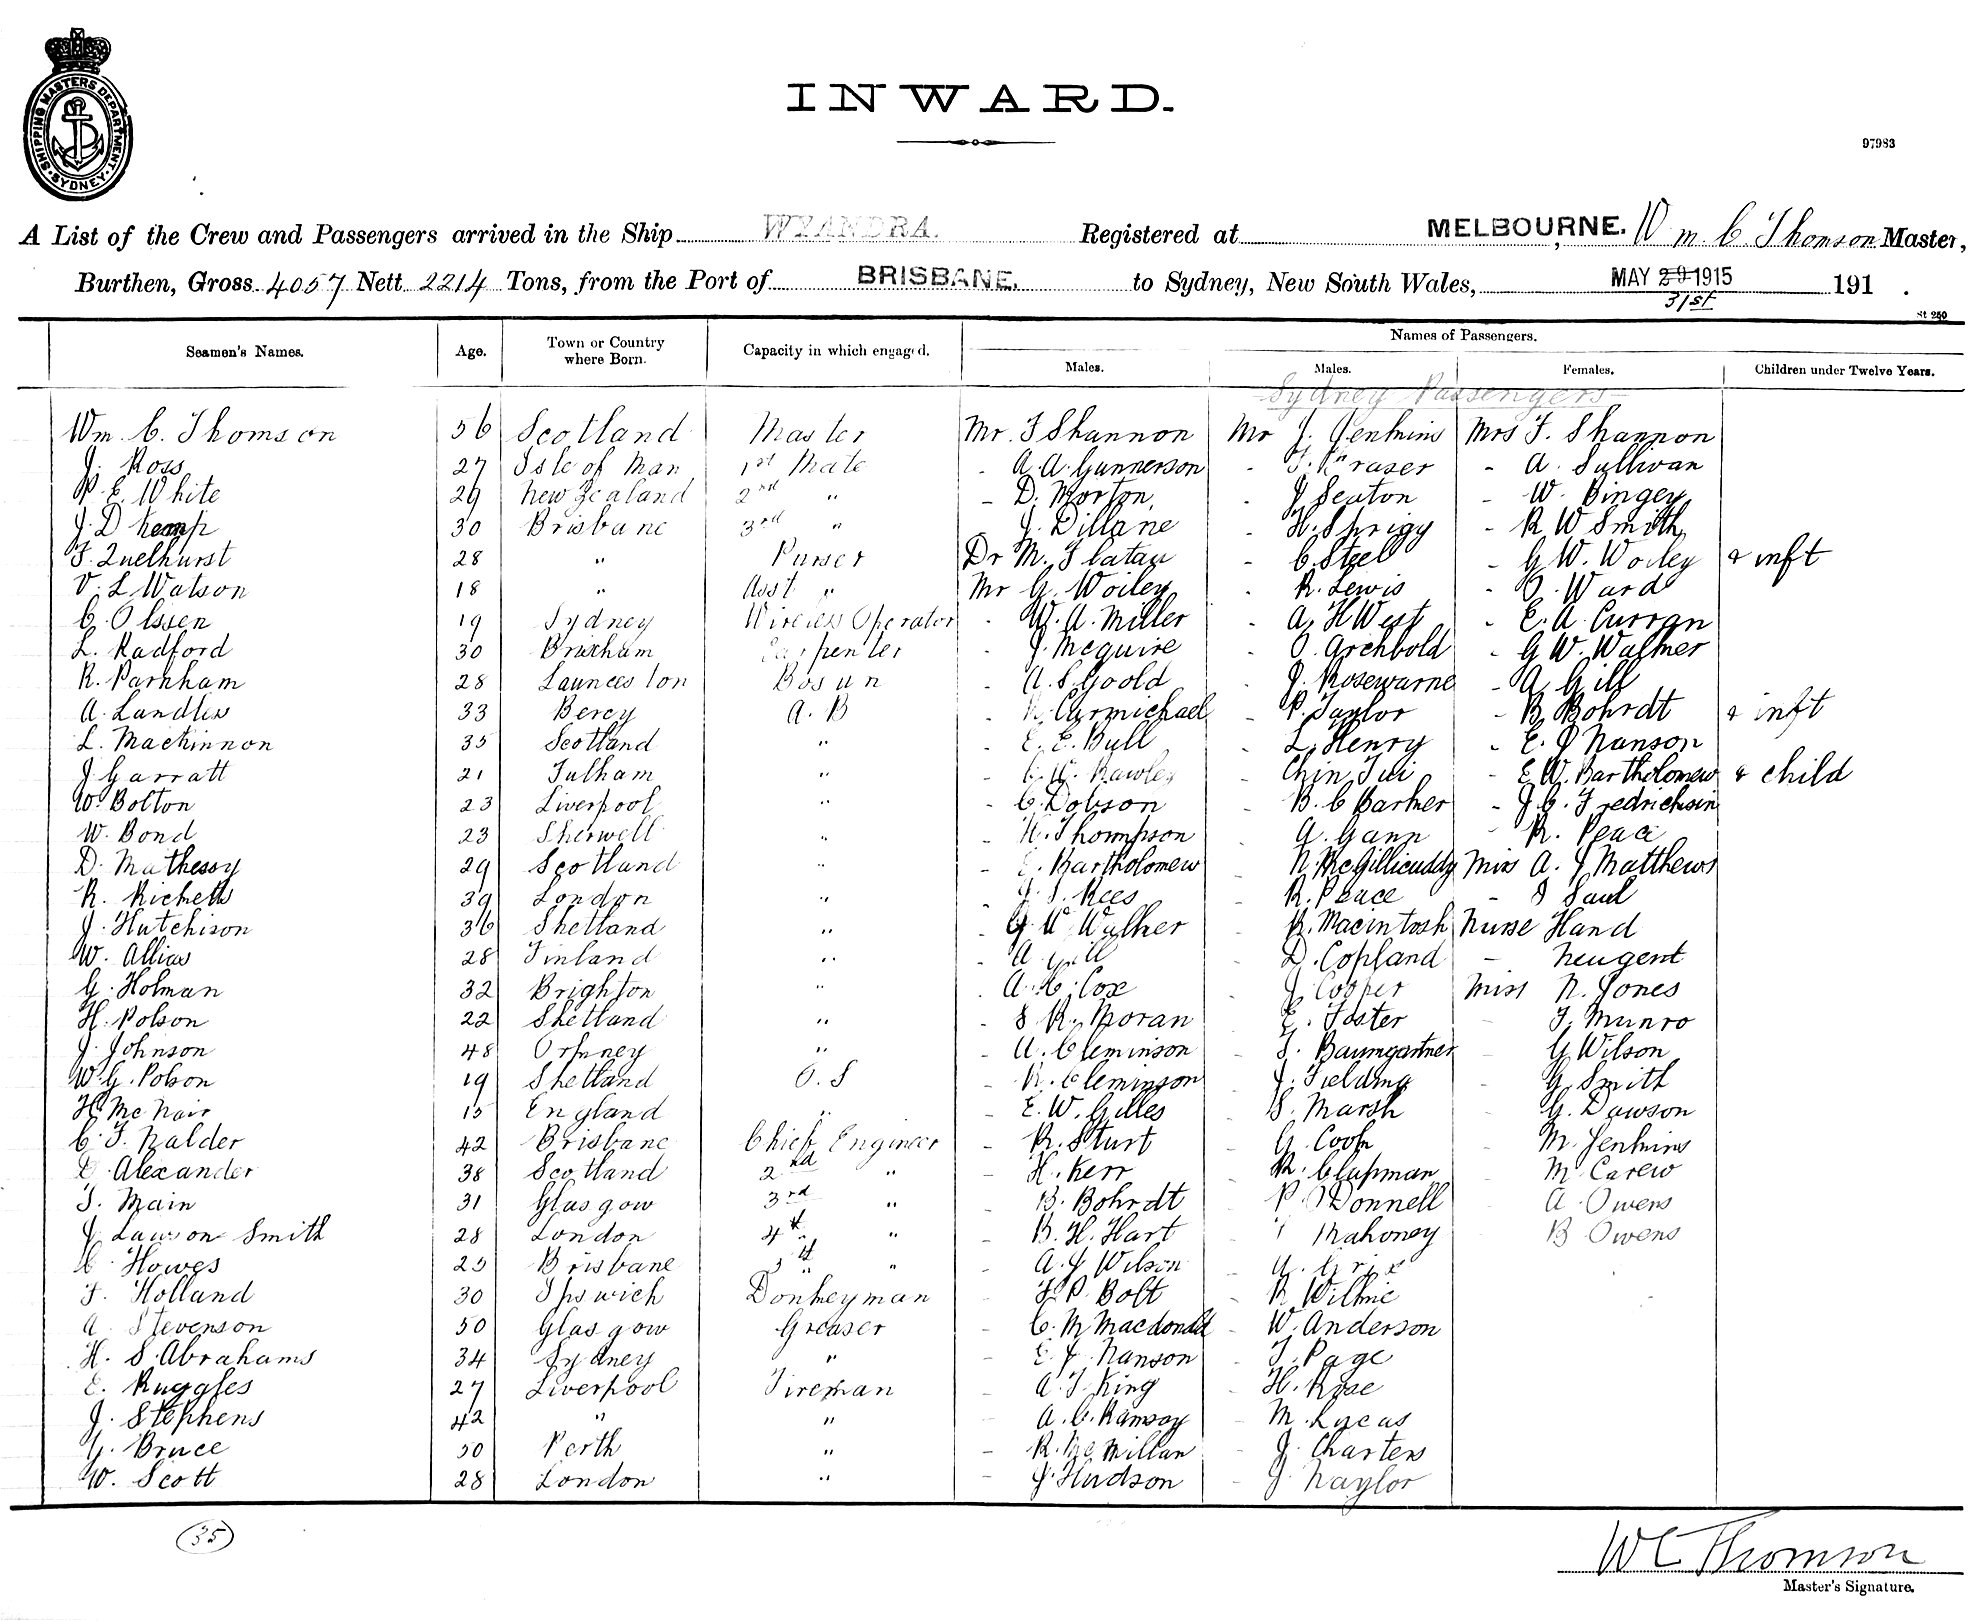 SHIPPING MASTERS DEPARTMENT · SYDNEY ·
INWARD.
97983
A List of the Crew and Passengers arrived in the Ship WYANDRA. Registered at MELBOURNE. Wm. C. Thomson Master,
Burthen, Gross 4057 Nett 2214 Tons, from the Port of BRISBANE, to Sydney, New South Wales, MAY 29 1915 191 .
31st
St 250
Seamen's Names. Age. Town or Country where Born. Capacity in which engaged. Names of Passengers.
Males. Males. Females. Children under Twelve Years.
Sydney Passengers
Wm. C. Thomson 56 Scotland Master Mr. F Shannon Mr J. Jenkins Mrs F. Shannon
J. Ross 27 Isle of Man 1st Mate - A. A. Gunnerson - Fraser - A. Sullivan
P. E. White 29 New Zealand 2nd " - D. Morton, - J Seaton - W. Bingey
J. D Kemp 30 Brisbane 3rd " - J. Dillane - H. Shrigy - R W Smith
F. Quelhurst 28 " Purser Dr M. Flatau - C. Steel - G W. Woiley & inft
V. L Watson 18 " Asst " Mr G. Woiley - R. Lewis - O. Ward
C. Olssen 19 Sydney Wireless Operator - W. A. Miller - A. H West - E. A. Curran
L. Radford 30 Brixham Carpenter - J. McGuire - O. Archbold - G W. Walker
R. Parnham 28 Launceston Bosun - A. S. Goold - J. Rosewarne - A Gill
A. Landlis 33 Bercy A. B - Carmichael - P. Taylor - B Bohrdt & inft
L. Mackinnon 35 Scotland " - E. E. Bull - L. Henry - E. J Nanson
J Garratt 21 Fulham " - Rawley - Chin Tui - E. W. Bartholomew & child
W. Bolton 23 Liverpool " - C. Dobson - B. C Barker - J. C. Fredrichsen
W. Bond 23 Sherwell " - H. Thompson - A. Gann - R. Peace
D. Mathesoy 29 Scotland " - E. Bartholomew - N. McGillicuddy Miss A. J Matthews
R. Ricketts 39 London " - J. S. Rees - R. Peace - J Saul
J. Hutchison 36 Shetland " - G W Walker - R. Macintosh Nurse Hand
W. Allias 28 Finland " - A Gill - D. Copland - Neugent
G. Holman 32 Brighton " - A. C. Cox - J Cooper Miss N. Jones
H. Polson 22 Shetland " - S R. Moran - E. Foster - F. Munro
J. Johnson 48 Orkney " - A. Cleminson - F. Baumgartner - G Wilson
W. G. Polson 19 Shetland O. S - R. Cleminson - J. Fielding - G. Smith
H. McNair 15 England " - E. W. Gilles - S. Marsh - G. Dawson
C. F. Nalder 42 Brisbane Chief Engineer - R. Sturt - G. Cook - M. Jenkins
D. Alexander 38 Scotland 2nd " - H. Kerr - R. Clapman - M. Carew
J. Main 31 Glasgow 3rd " - B. Bohrdt - P. O'Donnell - A. Owens
J. Lawson Smith 28 London 4th " - B. H. Hart - Mahoney - B Owens
C. Howes 25 Brisbane 5th " - A. J Wilson - Grix
F. Holland 30 Ipswich Donkeyman - F. P. Bolt - R Wilkie
A. Stevenson 50 Glasgow Greaser - C. M Macdonald - W. Anderson
H. S. Abrahams 34 Sydney " - E J. Nanson - J. Page
E. Ruggles 27 Liverpool Fireman - A. J. King - H. Rose
J. Stephens 42 " " - A. C. Ramsay - M. Lucas
G. Bruce 50 Perth " - R. McMillan - J. Charters
W. Scott 28 London " - J. Hudson - J Naylor
35
W C Thomson
Master's Signature.